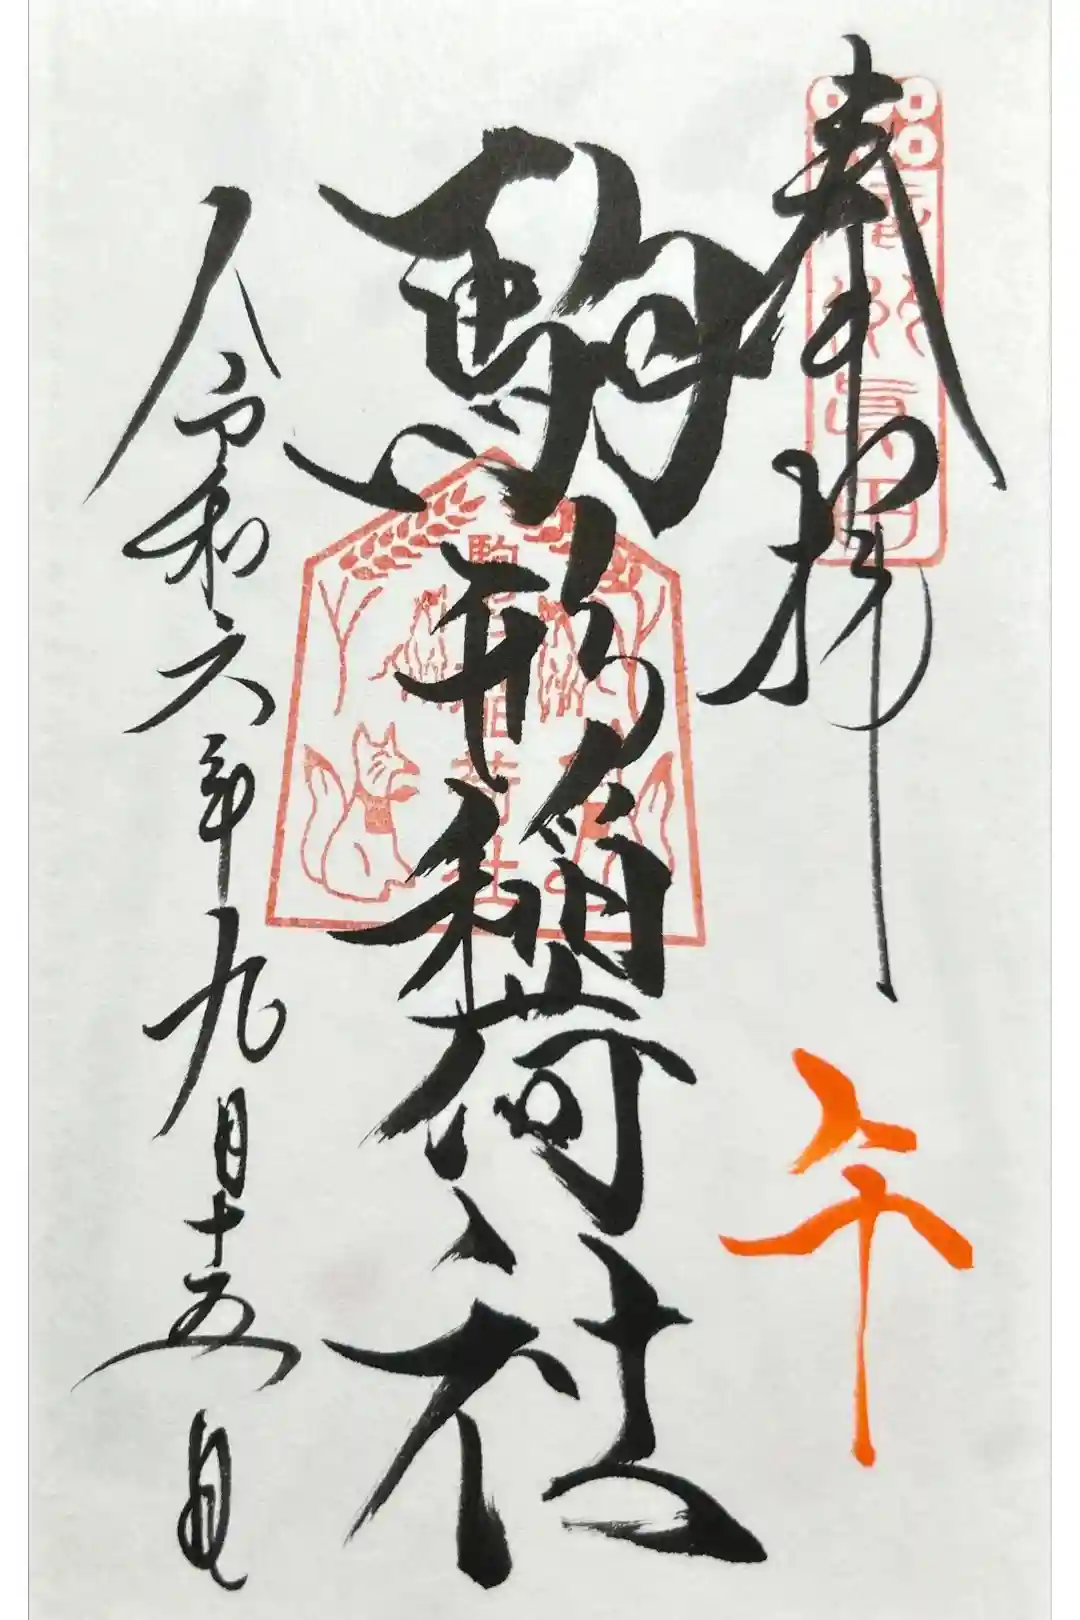 奉拝
午
駒形稲荷社
令和六年九月十五日
駒形稲荷社